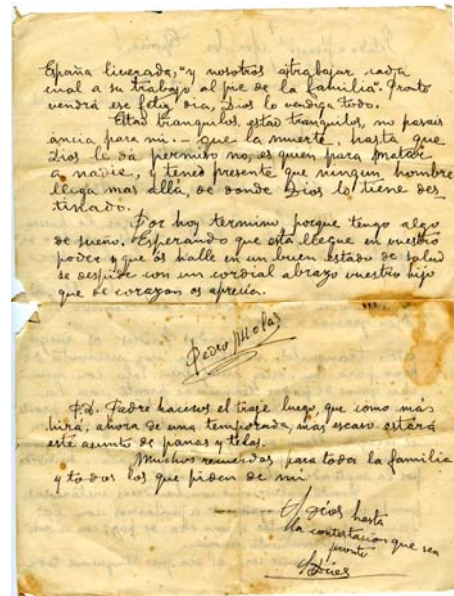 España liverada, "y nosotros atrabajar, cada
cual a su trabajo al pie de la familia". Pronto
vendrá ese feliz dia, Dios lo vendiga todo.
Estad tranquilos, estad tranquilos, no pasais
ancia para mi. — que la muerte, hasta que
Dios le dá permiso no, es quien para matar
a nadie, y tened presente que ningun hombre
llega mas allá, de donde Dios lo tiene des
tinado.
Por hoy termino, porque tengo algo
de sueño. Esperando que esta llegue en vuestro
poder y que os halle en un buen estado de salud
se despide con un cordial abrazo vuestro hijo
que de corazon os aprecia.
Pedro Molas
P.D. Padre haceros el traje luego, que como más
hirá, ahora de una temporada, mas escaso estará
este asunto de panas y telas.
Muchos recuerdos para toda la familia
y todos los que piden de mi
Adios hasta
la contestacion que sea
pronto
Adios